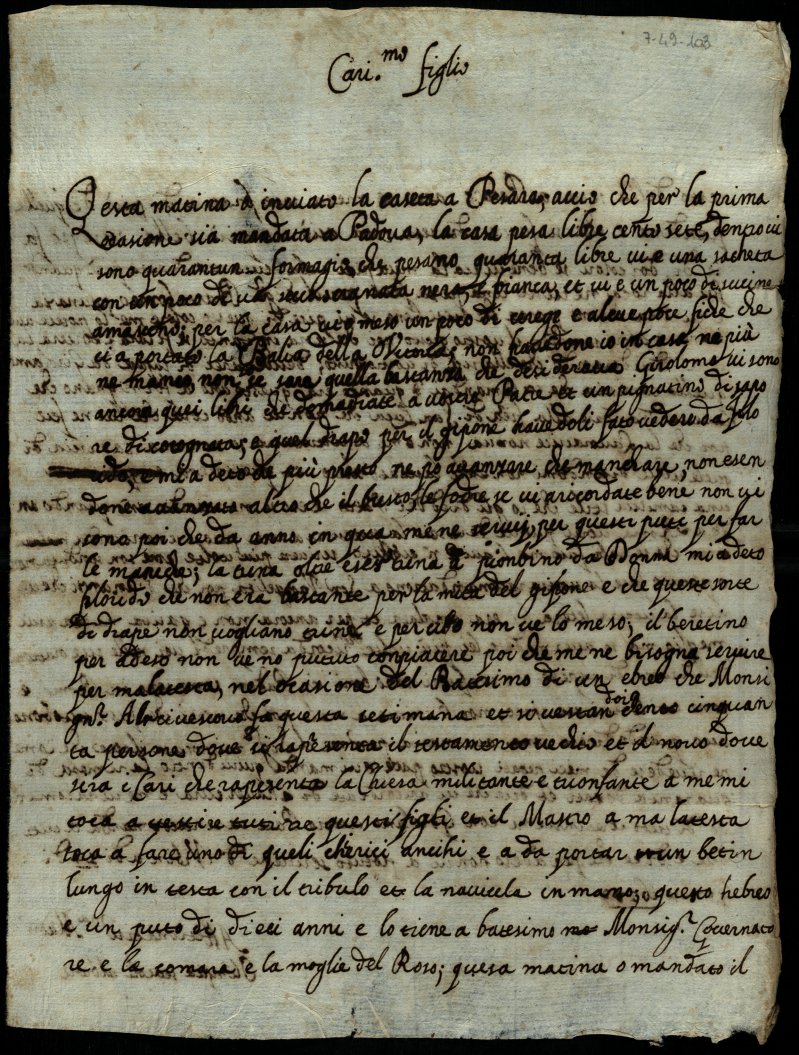 7-49-103
Cari.mo figlio
Qesta matina ò inviato la caseta a Pesaro, acciò che per la prima
ocasione sia mandata a Padova, la casa pesa libre cento sete, dentro vi
sono quarantun formagio, che pesano quaranta libre vi è una sacheta
con un poco di uva seca nera, e bianca, et vi è un poco di sucine
amasche; per la casa vi o meso un poco di cerege e alcue poche fiche che
ci a portato la Balia della Vitoria, non havedone io in casa ne più
ne manco non se sara quella bastanza che desiderava Girolomo vi sono
ancora quei libri che domadiate a vostro Patre et un pignatino di sapo
re di cotognata; e quel drapo per il gipone havedoli fato vedere da filo
mi a deto che più presto ne po avanzare che manchare, non esen
done altro che il busto, le fodre se vi aricordate bene non vi
sono poi che da anno in qua me ne servij per questi puti per far
le maniche; la tuna oltre piombino da Donna mi a deto
filoride che non era bastante per la metà del gipone e che queste sorte
di drape non vogliano trine e per cibo non ve lo meso; il beretino
per adeso non ve no pututo conpiacere poi che me ne bisogna servire
per malatesta, nel ocasione del Batesimo di un ebreo che Monsi
gnr. Alrcivescovo fa questa setimana et si vestan doi cento cinquan
ta persone dove si rapresenta il testamento vechio et il novo dove
sera i Cari che rapresenta la Chiesa militante e trionfante a me mi
toca a vestire tuti tre questi figli et il Mastro a malatesta
toca a fare uno di queli cherici ancihi e a da portar un betin
lungo in testa con il tribulo et la navicela in mano; questo hebreo
e un puto di dieci anni e lo tiene a batesimo Monsigr. Governato
re e la comare e la moglie del Roso; quesa matina o mandato il